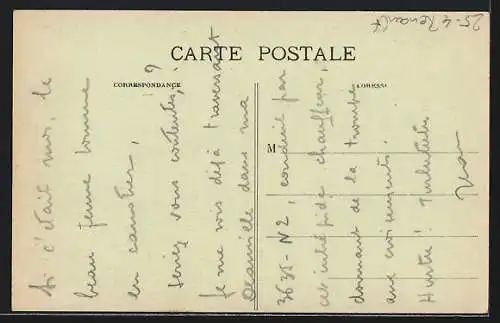 CARTE POSTALE
CORRESPONDANCE
ADRESSE
M
Si c'était moi, le
beau jeune homme
en canotier,
Seriez vous contentes, ?
Je me vois déjà traversant
Deauville dans ma
3635-N2, conduit par
cet intrépide chauffeur,
donnant de la trompe
aux croisements.
Turlututu
25-4 Renault